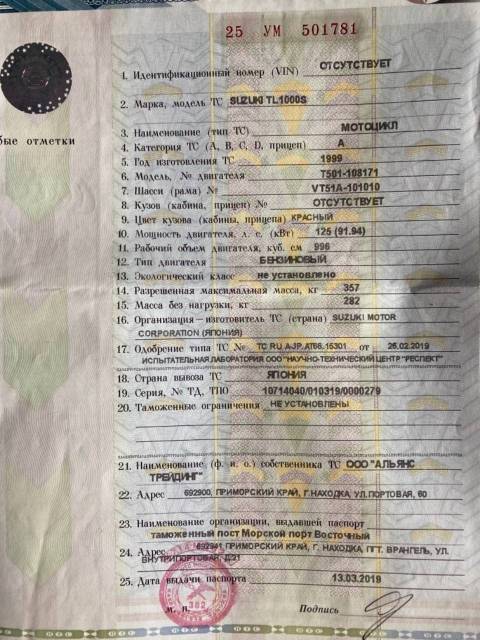 25 УМ 501781
1. Идентификационный номер (VIN) ОТСУТСТВУЕТ
2. Марка, модель ТС SUZUKI TL1000S
бые отметки
3. Наименование (тип ТС) МОТОЦИКЛ
4. Категория ТС (А, В, С, D, прицеп) А
5. Год изготовления ТС 1999
6. Модель, № двигателя T501-108171
7. Шасси (рама) № VT51A-101010
8. Кузов (кабина, прицеп) № ОТСУТСТВУЕТ
9. Цвет кузова (кабины, прицепа) КРАСНЫЙ
10. Мощность двигателя, л. с. (кВт) 125 (91.94)
11. Рабочий объем двигателя, куб. см 996
12. Тип двигателя БЕНЗИНОВЫЙ
13. Экологический класс не установлено
14. Разрешенная максимальная масса, кг 357
15. Масса без нагрузки, кг 282
16. Организация—изготовитель ТС (страна) SUZUKI MOTOR
CORPORATION (ЯПОНИЯ)
17. Одобрение типа ТС № ТС RU A-JP.АТ66.15301 от 25.02.2019
ИСПЫТАТЕЛЬНАЯ ЛАБОРАТОРИЯ ООО "НАУЧНО-ТЕХНИЧЕСКИЙ ЦЕНТР "РЕСПЕКТ"
18. Страна вывоза ТС ЯПОНИЯ
19. Серия, № ТД, ТПО 10714040/010319/0000279
20. Таможенные ограничения НЕ УСТАНОВЛЕНЫ
21. Наименование (ф. и. о.) собственника ТС ООО "АЛЬЯНС
ТРЕЙДИНГ"
22. Адрес 692900, ПРИМОРСКИЙ КРАЙ, Г.НАХОДКА, УЛ.ПОРТОВАЯ, 60
23. Наименование организации, выдавшей паспорт
таможенный пост Морской порт Восточный
24. Адрес 692941, ПРИМОРСКИЙ КРАЙ, Г. НАХОДКА, ПГТ. ВРАНГЕЛЬ, УЛ.
ВНУТРИПОРТОВАЯ, Д.21
25. Дата выдачи паспорта 13.03.2019
382
М. П. Подпись